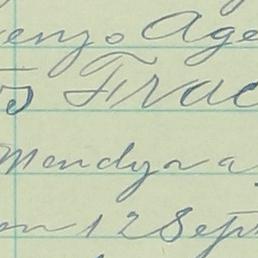 enzo Age
s Frac
Mendyona
on 12 Sept